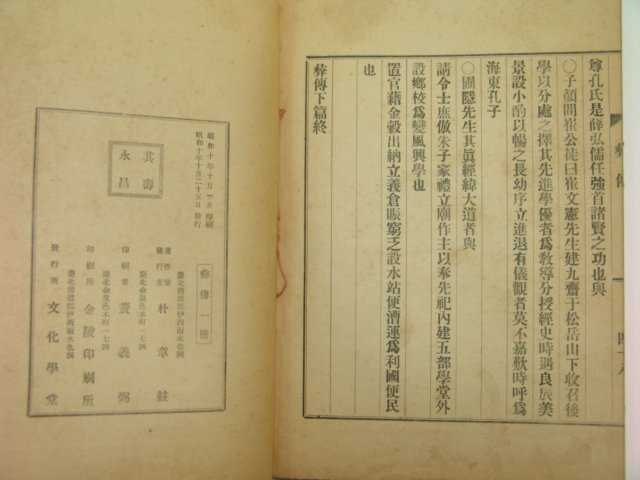 尊孔氏是薛弘儒任強首諸賢之功也與
○子顔問崔公徒曰崔文憲先生建九齋于松岳山下收召後
學以分處之擇其先進學優者爲教導分授經史時遇良辰美
景設小酌以暢之長幼序立進退有儀觀者莫不嘉歎時呼爲
海東孔子
○圃隱先生其眞經緯大道者與
請令士庶倣朱子家禮立廟作主以奉先祀內建五部學堂外
設鄉校爲變風興學也
置官藉金穀出納立義倉賑窮乏設水站便漕運爲利國便民
也
彜傳下篇終
彜傳
其壽
永昌
昭和十年十月 一日 印刷
昭和十年十月二十五日 發行
彜傳一冊
慶北清道郡伊西面水也洞
著作兼
發行者 朴章鉉
慶北金泉邑本町一七四
印刷者 黃義弼
慶北金泉邑本町一七四
印刷所 金陵印刷所
慶北清道郡伊西面水也洞
發行所 文化學堂